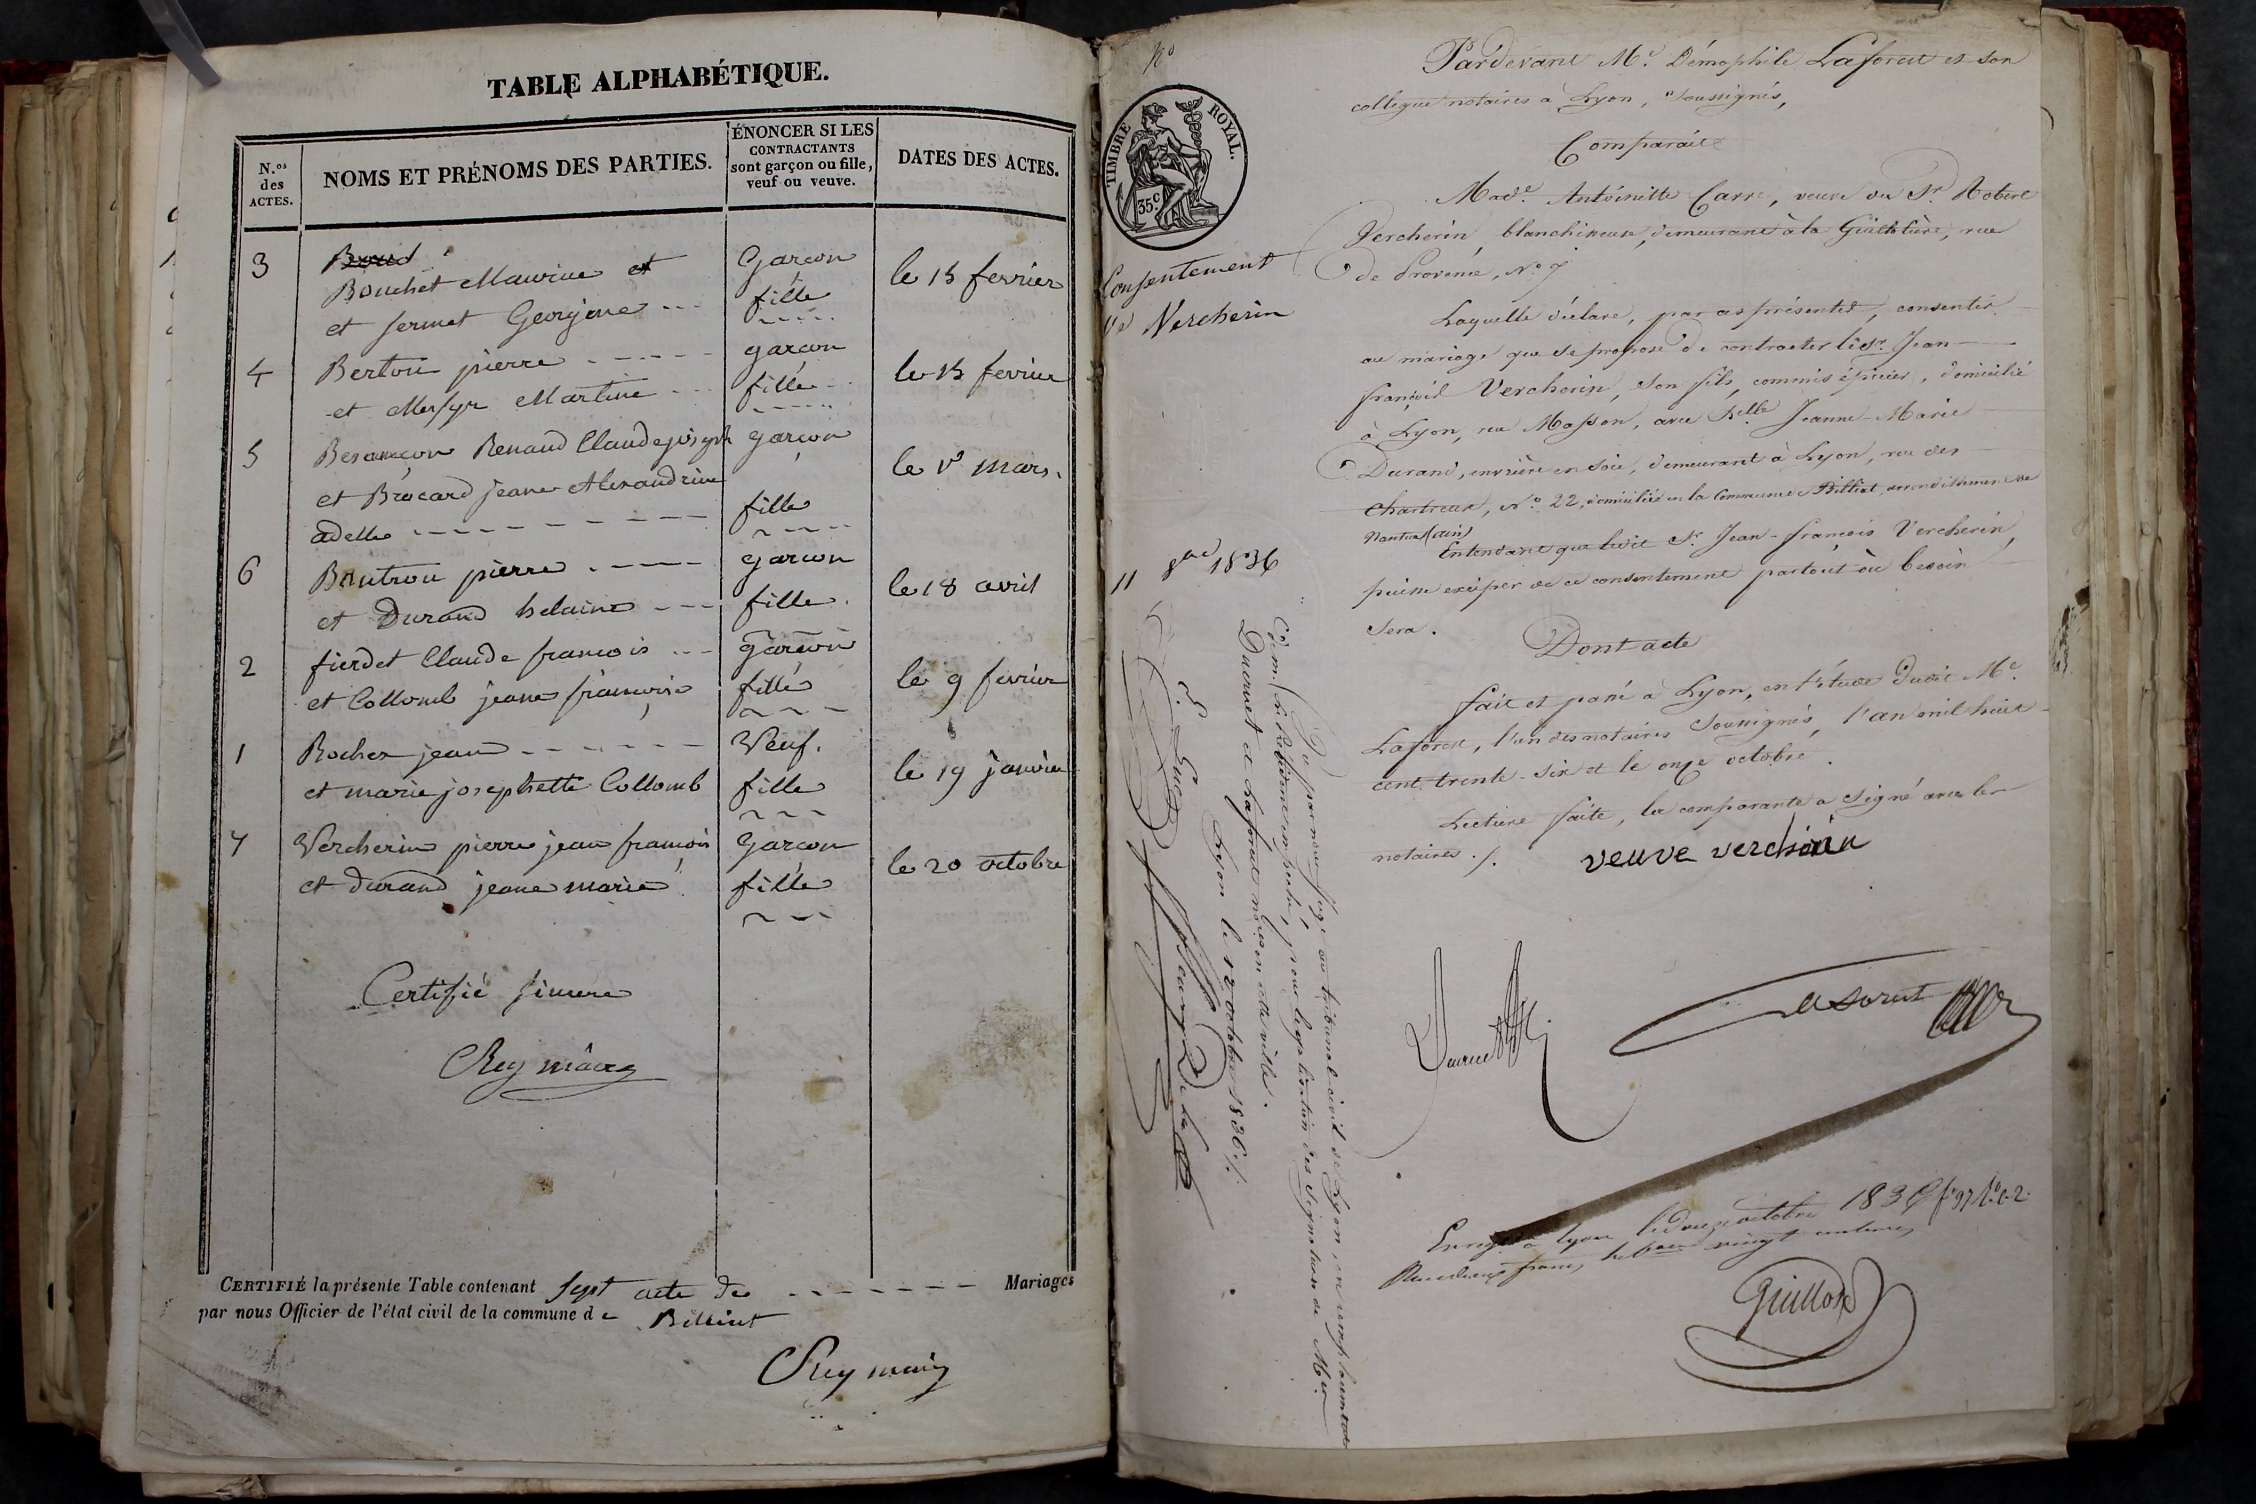 TABLE ALPHABÉTIQUE.
N.os des ACTES.
NOMS ET PRÉNOMS DES PARTIES.
ÉNONCER SI LES CONTRACTANTS sont garçon ou fille, veuf ou veuve.
DATES DES ACTES.
3 Bouchet Maurice et garçon le 15 fevrier
et fermet Georgine --- fille
4 Berton pierre ----- garçon le 15 fevrier
et Martine --- fille
5 Besançon Renaud Claude joseph garçon le 1er mars.
et Brocard jeane Alexandrine
adelle -------- fille
6 Boutron pierre ----- garcon le 18 avril
et Durand helaine --- fille.
2 fierdet Claude francois --- garcon le 9 fevrier
et Collomb jeane françoise fille
1 Rocher jean ------ Veuf. le 19 janvier
et marie josephette Collomb fille
7 Vercherin pierre jean francois garcon le 20 octobre
et durand jeane marie fille
Certifié sincere
Rey maire
CERTIFIÉ la présente Table contenant sept acte de ------- Mariages
par nous Officier de l'état civil de la commune de Billiat
Rey maire
TIMBRE ROYAL.
35c
Consentement
Ve Vercherin
11 8bre 1836
Pardevant Me. Démophile Laforest et son
collegue notaires à Lyon, soussignés,
Comparait
Made. Antoinette Carre, veuve du Sr. Robert
Vercherin, blanchisseuse, demeurant à la Guillotière, rue
de Provence, No. 7
Laquelle déclare, par ces présentes, consentir
au mariage que se propose de contracter le Sr. Jean
françois Vercherin, son fils, commis épicier, domicilié
à Lyon, rue Masson, avec Delle Jeanne-Marie
Durand, ouvrière en soie, demeurant à Lyon, rue des
Chartreux, No. 22, domiciliée en la Commune de Billiat, arrondissement de
Nantua (ain)
Entendant que ledit Sr. Jean-francois Vercherin,
puisse exciper de ce consentement partout où besoin
sera.
Dont acte
fait et passé à Lyon, en l'étude dudit Me.
Laforest, l'un des notaires soussignés, l'an mil huit
cent trente-six et le onze octobre.
Lecture faite, la comparante a signé avec les
notaires ./.
veuve verchérin
Laforest
Enregé à Lyon le douze octobre 1836 fo 97 Vo c. 2.
Reçu deux francs vingt centimes
Guillot
Vu par nous juge au tribunal civil de Lyon en remplacement de
empêché, pour légalisation des signatures de Mes
Ducruet et Laforest notres en cette ville.
Lyon le 12 octobre 1836 ./.